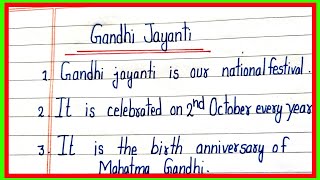 Gandhi Jayanti
1. Gandhi jayanti is our national festival.
2. It is celebrated on 2nd October every year
3. It is the birth anniversary of
Mahatma Gandhi.